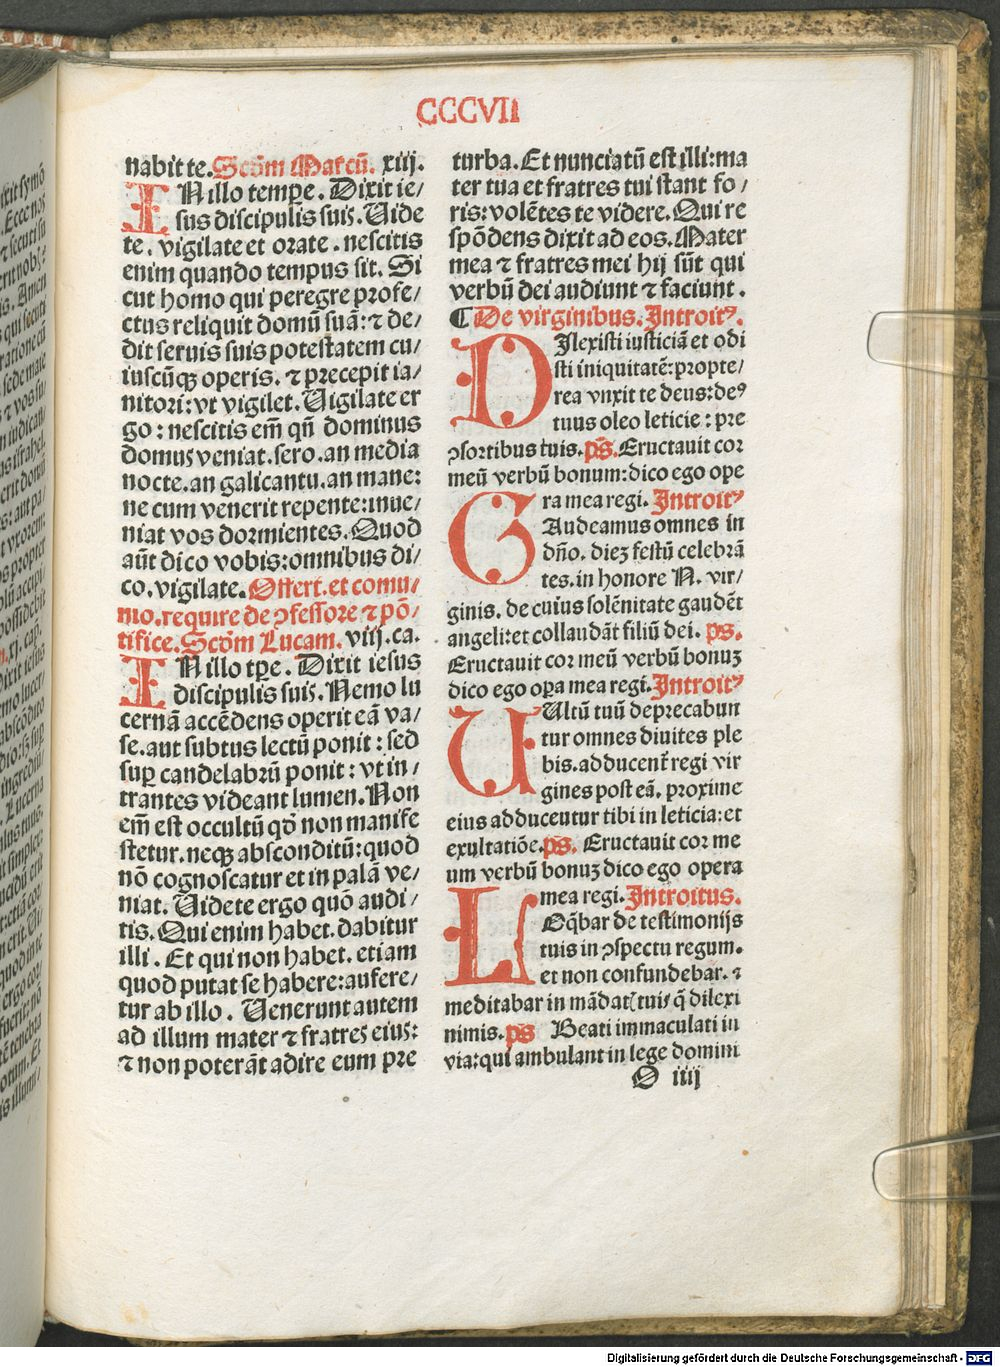 CCCVII
nabit te. Scđm Marcū. xiij.
IN illo tempꝛe. Dixit ie/
sus discipulis suis. Uide
te. vigilate et oꝛate. nescitis
enim quando tempus sit. Si
cut homo qui peregre pꝛofe/
ctus reliquit domū suā: ⁊ de/
dit seruis suis potestatem cu/
iuscūqꝫ operis. ⁊ pꝛecepit ia/
nitoꝛi: vt vigilet. Uigilate er
go: nescitis em̄ qn̄ dominus
domus veniat. sero. an media
nocte. an galicantu. an mane:
ne cum venerit repente: inue/
niat vos doꝛmientes. Quod
aūt dico vobis: omnibus di/
co. vigilate. Offert. et comu/
nio. require de ꝯfessoꝛe ⁊ pō/
tifice. Scđm Lucam. viij. ca.
IN illo tꝑe. Dixit iesus
discipulis suis. Nemo lu
cernā accēdens operit eā va/
se. aut subtus lectū ponit: sed
suꝑ candelabꝛū ponit: vt in/
trantes videant lumen. Non
em̄ est occultū qđ non manife
stetur. neqꝫ absconditū: quod
nō cognoscatur et in palā ve/
niat. Uidete ergo quō audi/
tis. Qui enim habet. dabitur
illi. Et qui non habet. etiam
quod putat se habere: aufere/
tur ab illo. Uenerunt autem
ad illum mater ⁊ fratres eius:
⁊ non poterāt adire eum pꝛe
turba. Et nunciatū est illi: ma
ter tua et fratres tui stant fo/
ris: volētes te videre. Qui re
spōdens dixit ad eos. Mater
mea ⁊ fratres mei hij sūt qui
verbū dei audiunt ⁊ faciunt.
¶ De virginibus. Introitꝰ.
DIlexisti iusticiā et odi
sti iniquitatē: pꝛopte/
rea vnxit te deus: deꝰ
tuus oleo leticie: pꝛe
ꝯsoꝛtibus tuis. ps. Eructauit coꝛ
meū verbū bonum: dico ego ope
ra mea regi. Introitꝰ
GAudeamus omnes in
dño. dieꝫ festū celebꝛā
tes. in honoꝛe N. vir/
ginis. de cuius solēnitate gaudēt
angeli: et collaudāt filiū dei. ps.
Eructauit coꝛ meū verbū bonuꝫ
dico ego oꝑa mea regi. Introitꝰ
UUltū tuū depꝛecabun
tur omnes diuites ple
bis. adducent̄ regi vir
gines post eā. pꝛoxime
eius adducentur tibi in leticia: et
exultatiōe. ps. Eructauit coꝛ me
um verbū bonuꝫ dico ego opera
mea regi. Introitus.
LOq̄bar de testimonijs
tuis in ꝯspectu regum.
et non confundebar. ⁊
meditabar in mādatꝭ tuis q̄ dilexi
nimis. ps Beati immaculati in
via: qui ambulant in lege domini
O iiij
Digitalisierung gefördert durch die Deutsche Forschungsgemeinschaft - DFG